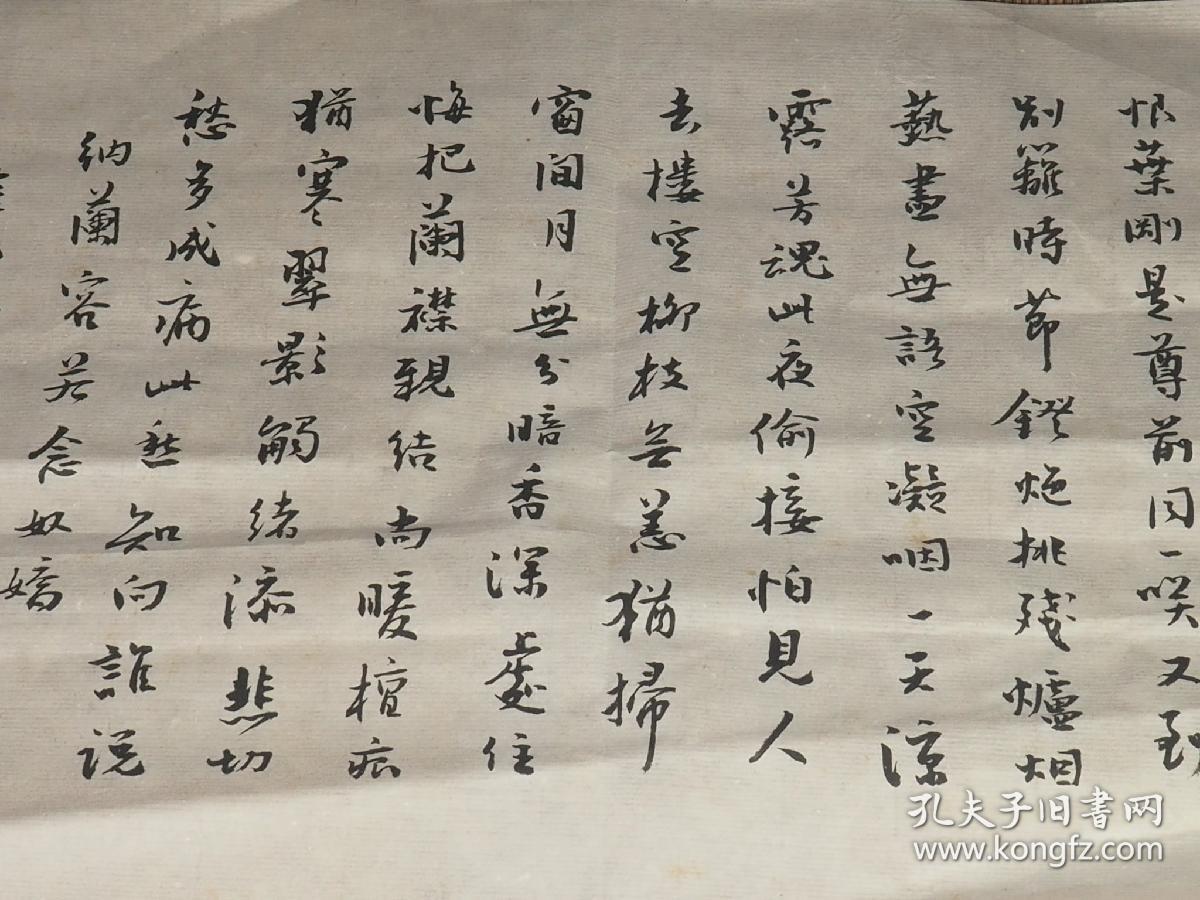 恨葉剛是尊前同一笑又到
別離時節鐙灺挑殘爐烟
爇盡無語空凝咽一天涼
露芳魂此夜偷接怕見人
去樓空柳枝無恙猶掃
窗間月無分暗香深處住
悔把蘭襟親結尚暖檀痕
猶寒翠影觸緒添悲切
愁多成病此愁知向誰说
納蘭容若念奴嬌
孔夫子旧书网
www.kongfz.com